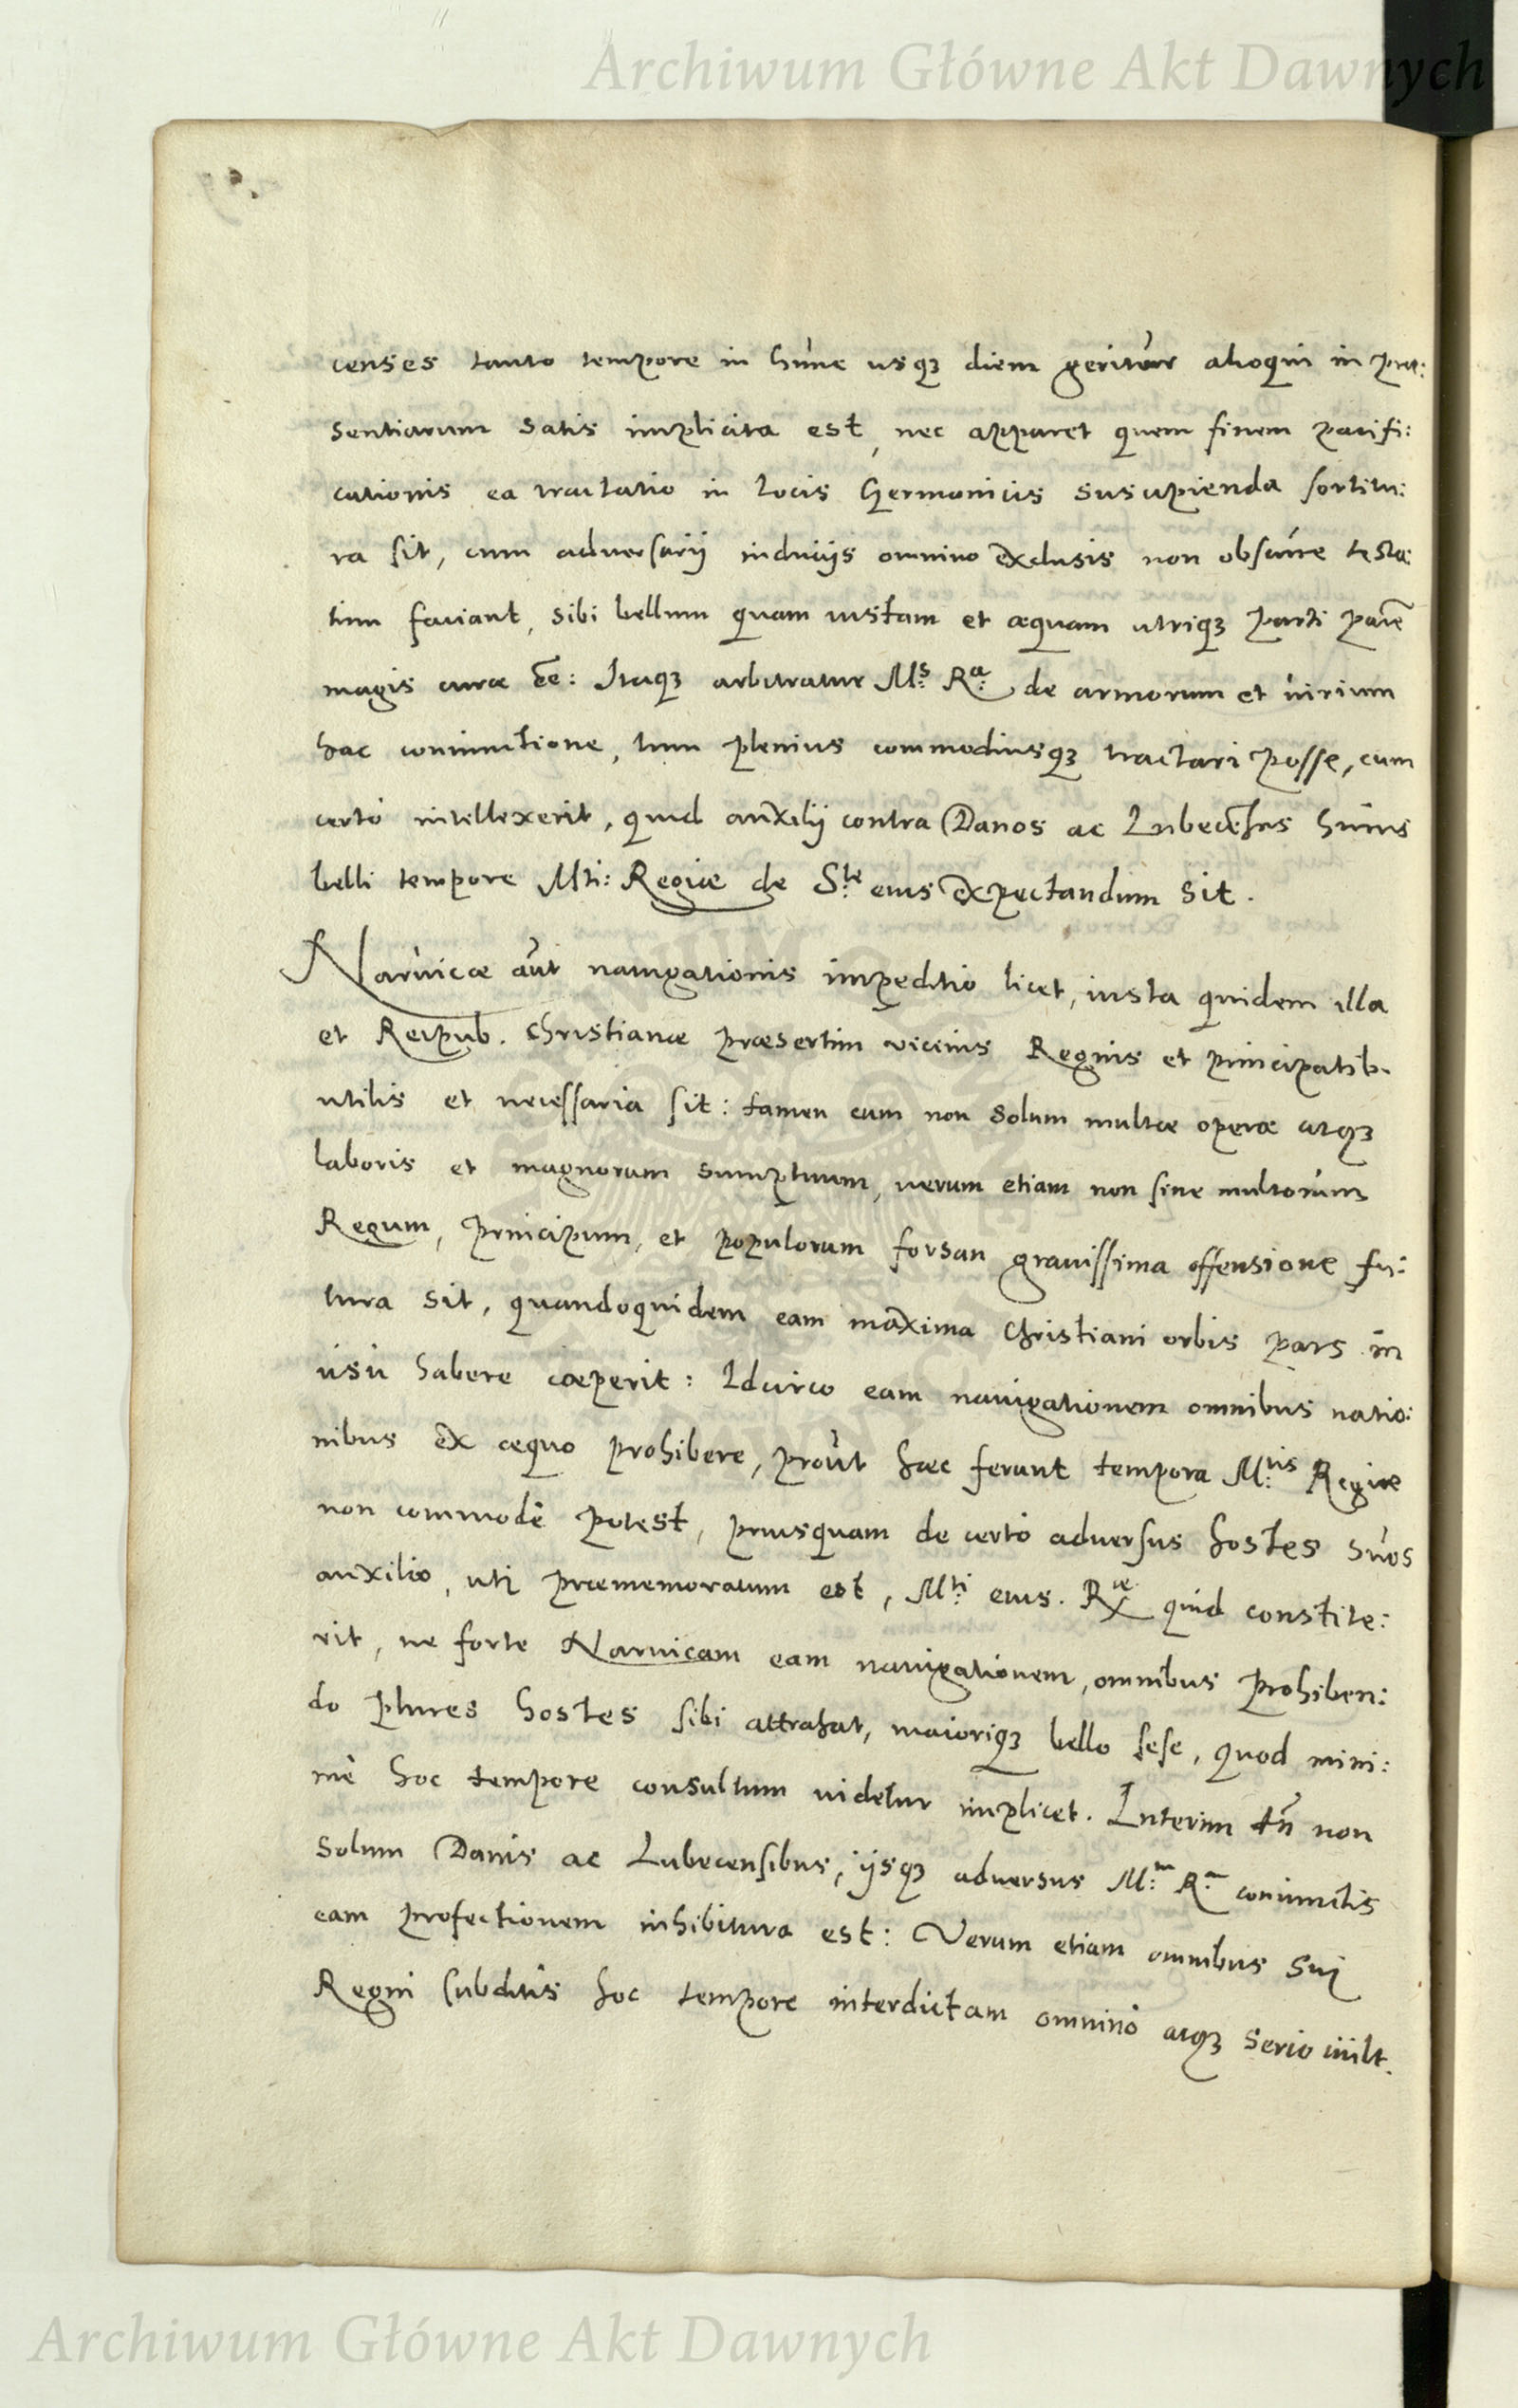 Archiwum Główne Akt Dawnych
censes tanto tempore in hunc usq3 diem geritur alioqui in præ:
sentiarum satis implicita est, nec apparet quem finem pacifi:
cationis ea tractatio in locis Germanicis suscipienda sortitu:
ra sit, cum adversarij induciis omnino exclusis non obscure testa
tum faciant, sibi bellum quam iustam et æquam utriq3 parti pacē
magis curæ ēe: Itaq3 arbitratur M:s R:a de armorum et virium
hac coniunctione, tum plenius commodiusq3 tractari posse, cum
certo intellexerit, quid auxilij contra Danos ac Lubecēses huius
belli tempore Mti: Regiæ de S:te eius expectandum sit.
Narvicæ aūt navigationis impeditio licet, iusta quidem illa
et Reipub. Christianæ præsertim vicinis Regnis et principatib.
utilis et necessaria sit: tamen cum non solum multæ operæ atq3
laboris et magnorum sumptuum, verum etiam non sine multorum
Regum, principum, et populorum forsan gravissima offensione fu:
tura sit, quandoquidem eam maxima Christiani orbis pars in
usu habere cœperit: Idcirco eam navigationem omnibus natio:
nibus ex æquo prohibere, prout hæc ferunt tempora M:tis Regiæ
non commodè potest, priusquam de certo adversus hostes suos
auxilio, uti præmemoratum est, M:ti eius. R:æ quid constite:
rit, ne forte Narvicam eam navigationem, omnibus prohiben:
do plures hostes sibi attrahat, maioriq3 bello sese, quod mini:
mè hoc tempore consultum videtur implicet. Interim tñ non
solum Danis ac Lubecensibus, ijsq3 adversus M:m R:m coniunctis
eam profectionem inhibitura est: Verum etiam omnibus sui
Regni subditis hoc tempore interdictam omnino atq3 serio vult.
Archiwum Główne Akt Dawnych